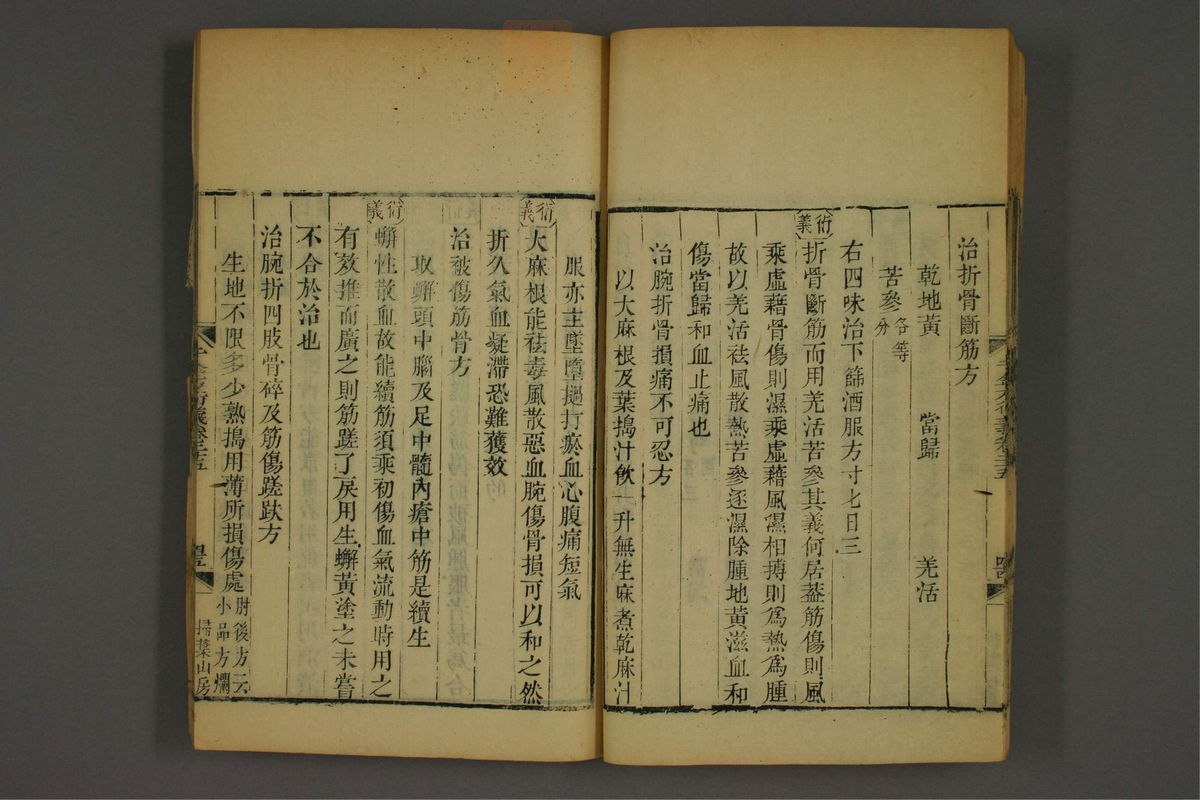 治折骨斷筋方
乾地黃　當歸　羌活
苦參各等分
右四味治下篩酒服方寸匕日三
衍義 折骨斷筋而用羌活苦參其義何居葢筋傷則風
乘虛藉骨傷則濕乘虛藉風濕相搏則為熱為腫
故以羌活祛風散熱苦參逐濕除腫地黃滋血和
傷當歸和血止痛也
治腕折骨損痛不可忍方
以大麻根及葉搗汁飲一升無生麻煮乾麻汁
服亦主墜墮撾打瘀血心腹痛短氣
衍義 大麻根能祛毒風散惡血腕傷骨損可以和之然
折久氣血凝滯恐難獲效
治被傷筋骨方
取蠏頭中腦及足中髓內瘡中筋是續生
衍義 蠏性散血故能續筋須乘初傷血氣流動時用之
有效推而廣之則筋蹉了戾用生蠏黃塗之未嘗
不合於治也
治腕折四肢骨碎及筋傷蹉趺方
生地不限多少熟搗用薄所損傷處肘後方云小品方爛
千金方衍義卷二十五
掃葉山房